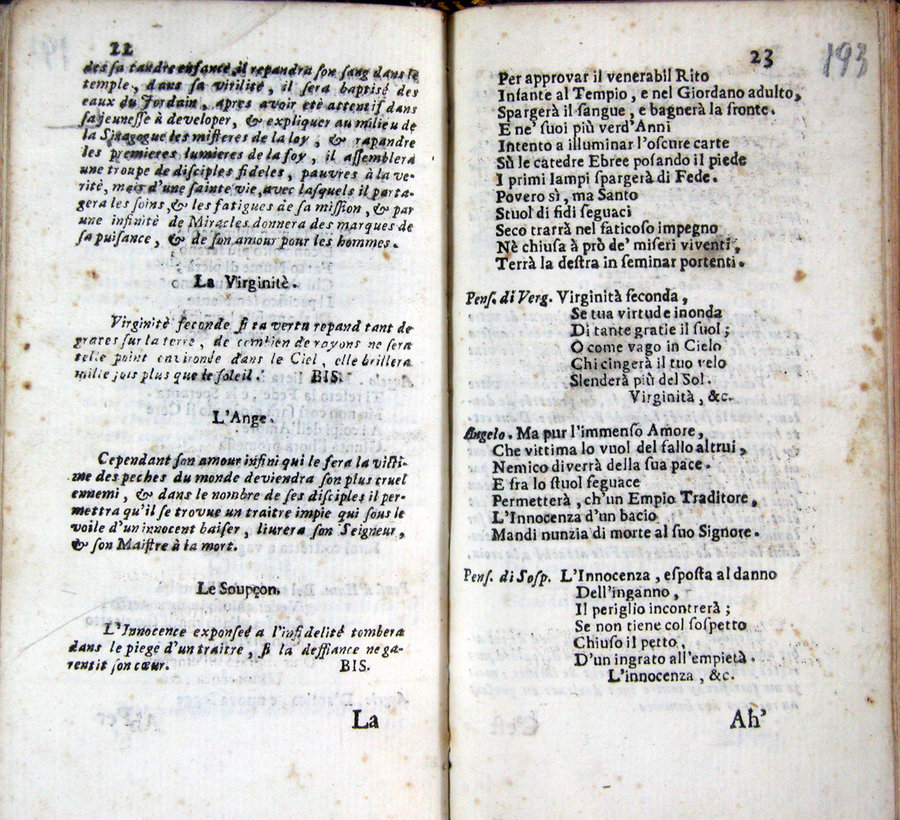 22
des sa tandre enfance, il repandra son sang dans le
temple, dans sa virilitè, il sera baptisé des
eaux du Jordain, apres avoir etè attentif dans
sa jeunesse à developer, & expliquer au milieu de
la Sinagogue les misteres de la loy, & rapandre
les premieres lumieres de la foy, il assemblera
une troupe de disciples fideles, pauvres à la ve-
rité, meis d'une sainte vie, avec lasquels il parta-
gera les soins, & les fatigues de sa mission, & par
une infinitè de Miracles donnera des marques de
sa puisance, & de son amour pour les hommes.
La Virginitè.
Virginitè feconde si ta vertu repand tant de
graces sur la terre, de combien de rayons ne sera
telle point environde dans le Ciel, elle brillera
mille fois plus que le soleil. BIS.
L'Ange.
Cependant son amour infini qui le fera la victi-
me des peches du monde deviendra son plus cruel
ennemi, & dans le nombre de ses disciples il per-
mettra qu'il se trovue un traitre impie qui sous le
voile d'un innocent baiser, liurera son Seigneur,
& son Maistre à la mort.
Le Soupçon.
L'Innocence exponseé a l'infidelité tombera
dans le piege d'un traitre, si la deffiance ne ga-
rentit son cœur. BIS.
La
23
193
Per approvar il venerabil Rito
Infante al Tempio, e nel Giordano adulto,
Spargerà il sangue, e bagnerà la fronte.
E ne' suoi più verd'Anni
Intento a illuminar l'oscure carte
Sù le catedre Ebree posando il piede
I primi lampi spargerà di Fede.
Povero sì, ma Santo
Stuol di fidi seguaci
Seco trarrà nel faticoso impegno
Nè chiusa à prò de' miseri viventi,
Terrà la destra in seminar portenti.
Pens. di Verg. Virginità feconda,
Se tua virtude inonda
Di tante gratie il suol;
O come vago in Cielo
Chi cingerà il tuo velo
Slenderà più del Sol.
Virginità, &c.
Angelo. Ma pur l'immenso Amore,
Che vittima lo vuol del fallo altrui,
Nemico diverrà della sua pace.
E fra lo stuol seguace
Permetterà, ch'un Empio Traditore,
L'Innocenza d'un bacio
Mandi nunzia di morte al suo Signore.
Pens. di Sosp. L'Innocenza, esposta al danno
Dell'inganno,
Il periglio incontrerà;
Se non tiene col sospetto
Chiuso il petto,
D'un ingrato all'empietà.
L'innocenza, &c.
Ah'